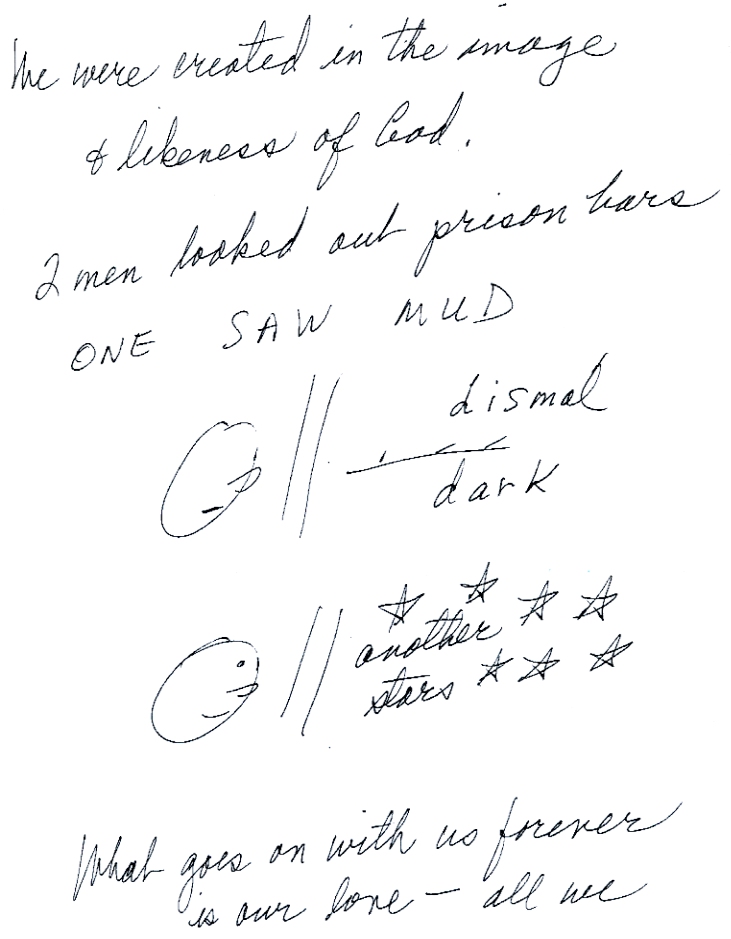 We were created in the image
& likeness of God.
2 men looked out prison bars
ONE SAW MUD
dismal
dark
another
stars
What goes on with us forever
is our love — all we